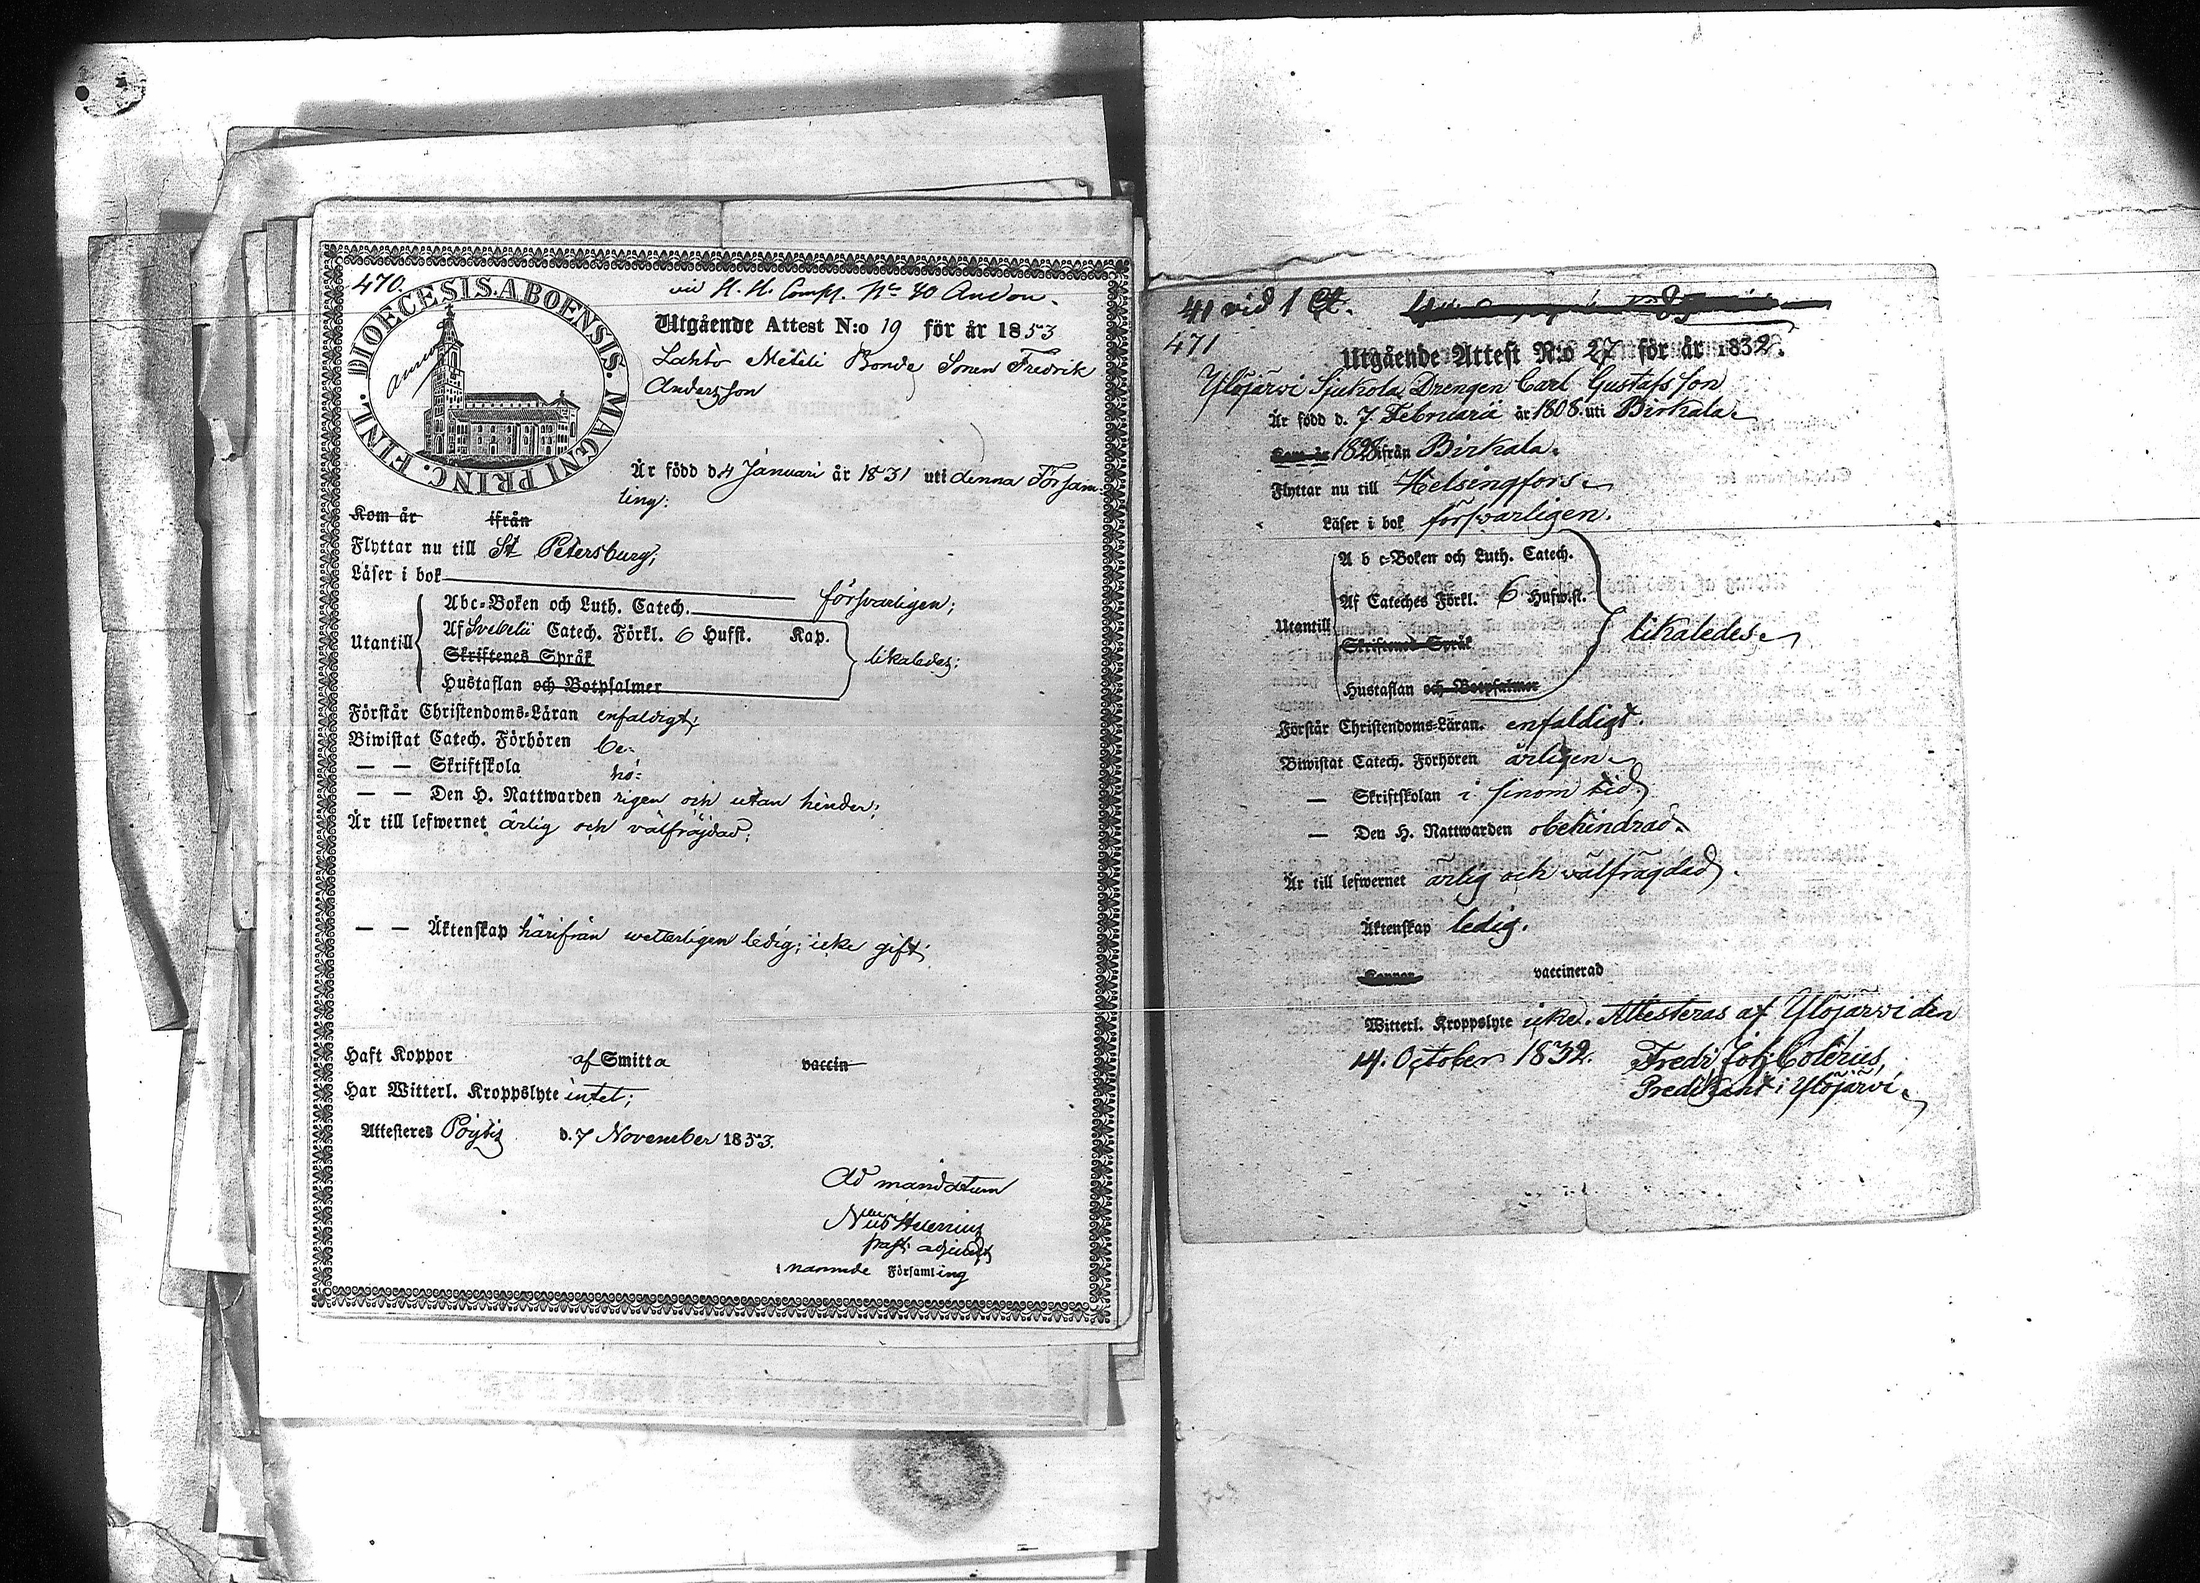 470.
DIOECESIS ABOENSIS. MAGNI PRINC. FINL.
vid H. H. Comp. No 40
Utgående Attest N:o 19 för år 1853
Lahto Mételi Bonde Sonen Fredrik
Andersson
Är född d. 4 Januari år 1831 uti denna Församling:
Kom år ifrån
Flyttar nu till St Petersburg;
Läser i bok försvarligen;
Utantill
Abc-Boken och Luth. Catech.
Af Svebelii Catech. Förkl. 6 Hufst. Kap.
Skriftenes Språk
Hustaflan och Botpsalmer
likaledes:
Förstår Christendoms-Läran enfaldigt;
Biwistat Catech. Förhören be-
— — Skriftskola hö-
— — Den H. Nattwarden rigen och utan hinder;
Är till lefwernet ärlig och välfräjdad;
— — Äktenskap härifrån wetterligen ledig; icke gift;
Haft Koppor af Smitta vaccin
Har Witterl. Kroppslyte intet;
Attesteres Pöytis d. 7 November 1853.
Ad mandatum
past: adjunct
i namnde Församling
41 vid 1 Ct.
471
Utgående Attest N:o 27 för år 1832.
Ylöjärvi Sjukola Drengen Carl Gustafsson
Är född d. 7 Februarii år 1808. uti Birkala
Kom år 1828 ifrån Birkala.
Flyttar nu till Helsingfors
Läser i bok försvarligen.
Utantill
A b c-Boken och Luth. Catech.
Af Cateches Förkl. 6 Hufwst.
Skriftenes Språk
Hustaflan och Botpsalmer
likaledes
Förstår Christendoms-Läran. enfaldigt.
Biwistat Catech. Förhören årligen
— Skriftskolan i sinom tid
— Den H. Nattwarden obehindrad
Är till lefwernet ärlig och välfrägdad.
Äktenskap ledig.
Koppor vaccinerad
Witterl. Kroppslyte icke. Attesteras af Ylöjärvi den
14. October 1832. Fredr. Joh: Colerus,
Predikant i Ylöjärvi